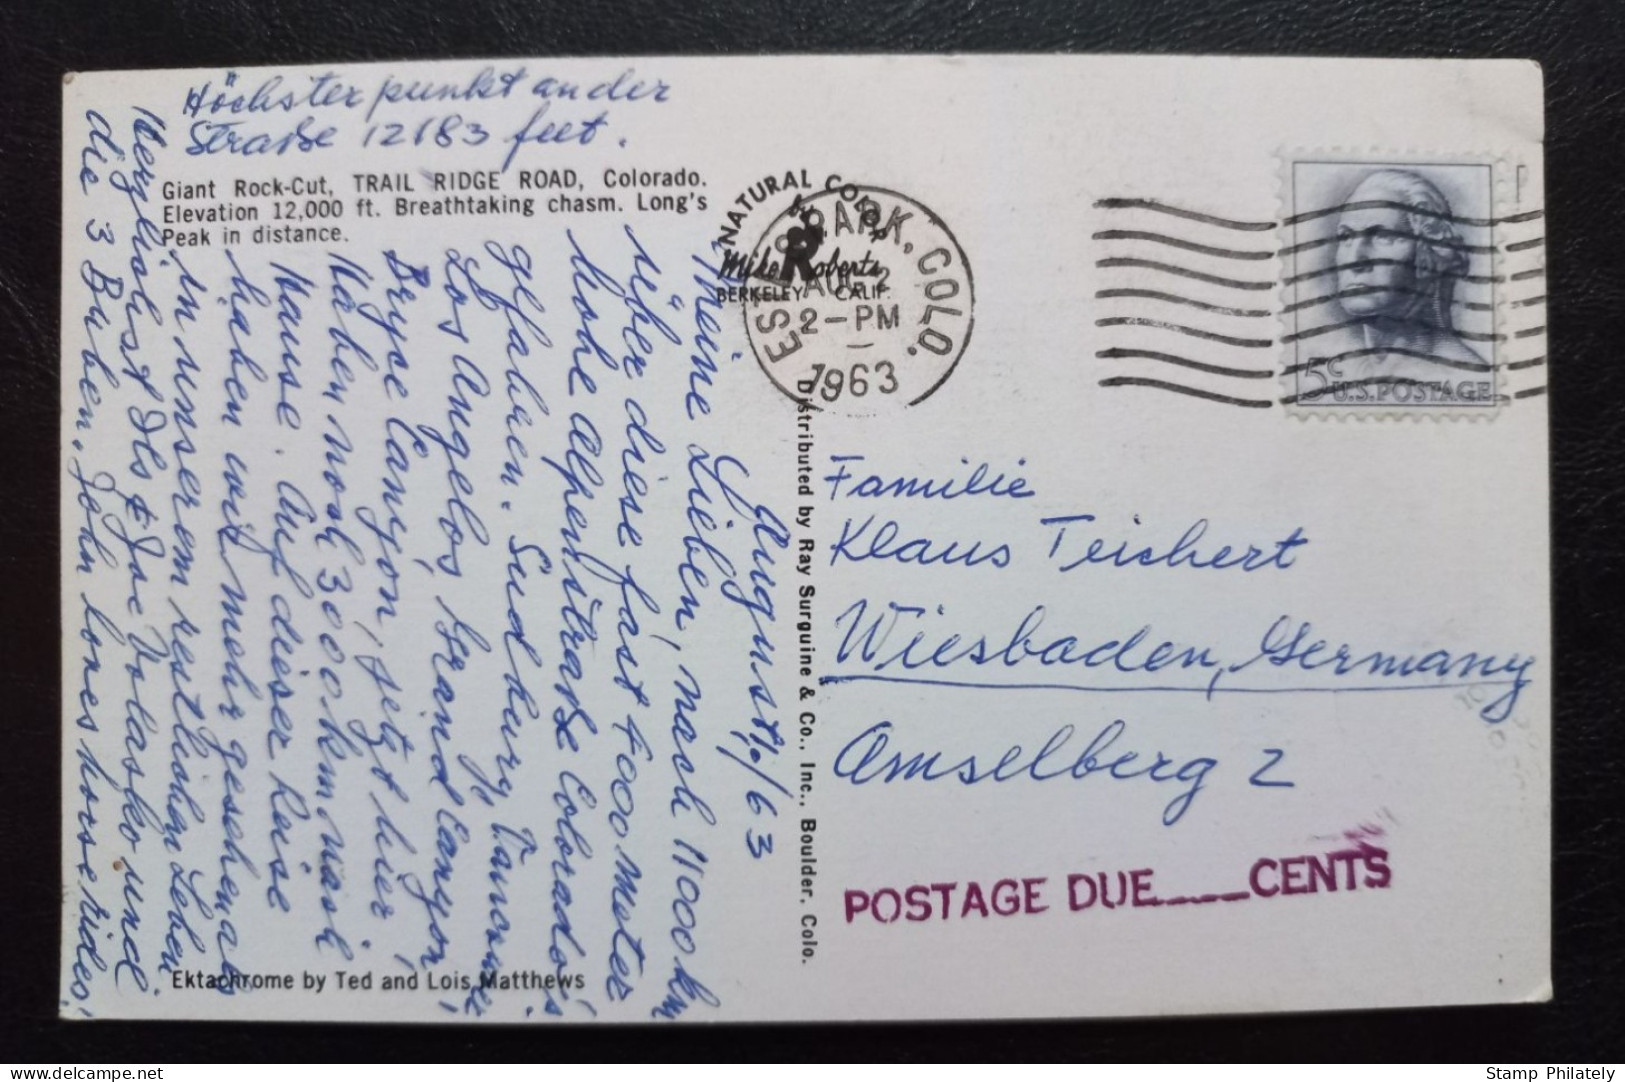 Höchster punkt an der
Straße 12183 feet.
Giant Rock-Cut, TRAIL RIDGE ROAD, Colorado.
Elevation 12,000 ft. Breathtaking chasm. Long's
Peak in distance.
August /63
Meine Lieben, nach 11000 km
über diese fast 4000 Meter
hohe Alpenstraße Colorado's
gefahren. Sudbury, Vancouver,
Los Angelos, Grand Canyon,
Bryce Canyon, jetzt hier,
Haben noch 3000 km nach
Hause. Auf dieser Reise
haben wir mehr gesehen als
in unserem restlichen Leben
Herzlichst Ils & Joe Volasko und
die 3 Buben. John loves horse rides,
Ektachrome by Ted and Lois Matthews
NATURAL COLOR
Mike Roberts
BERKELEY CALIF.
Distributed by Ray Surguine & Co., Inc., Boulder, Colo.
PARK, COLO.
2-PM
1963
5c
U.S. POSTAGE
Familie
Klaus Teichert
Wiesbaden, Germany
Amselberg 2
POSTAGE DUE____CENTS
Stamp Philately